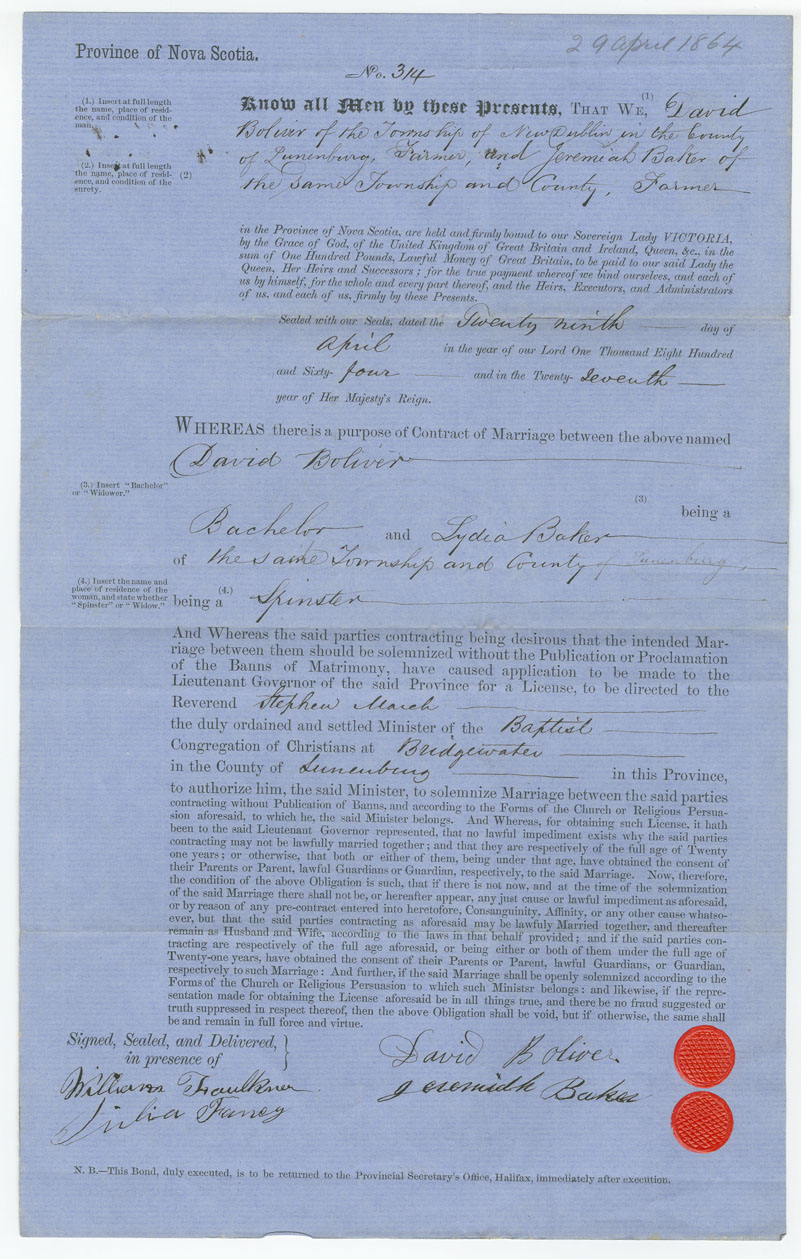 Province of Nova Scotia.
29 April 1864
No. 314
(1.) Insert at full length
the name, place of resid-
ence, and condition of the
man.
Know all Men by these Presents, THAT WE, (1) David
Boliver of the Township of New Dublin, in the County
of Lunenburg, Farmer, and Jeremiah Baker of
(2.) Insert at full length
the name, place of resid-
ence, and condition of the
surety.
(2) the Same Township and County, Farmer
in the Province of Nova Scotia, are held and firmly bound to our Sovereign Lady VICTORIA,
by the Grace of God, of the United Kingdom of Great Britain and Ireland, Queen, &c., in the
sum of One Hundred Pounds, Lawful Money of Great Britain, to be paid to our said Lady the
Queen, Her Heirs and Successors; for the true payment whereof we bind ourselves, and each of
us by himself, for the whole and every part thereof, and the Heirs, Executors, and Administrators
of us, and each of us, firmly by these Presents.
Sealed with our Seals, dated the Twenty ninth day of
April in the year of our Lord One Thousand Eight Hundred
and Sixty- four and in the Twenty- Seventh
year of Her Majesty's Reign.
WHEREAS there is a purpose of Contract of Marriage between the above named
David Boliver
(3.) Insert "Bachelor"
or "Widower."
(3) being a
Bachelor and Lydia Baker
of the same Township and County of Lunenburg,
(4.) Insert the name and
place of residence of the
woman, and state whether
"Spinster" or "Widow."
being a (4.) Spinster
And Whereas the said parties contracting being desirous that the intended Mar-
riage between them should be solemnized without the Publication or Proclamation
of the Banns of Matrimony, have caused application to be made to the
Lieutenant Governor of the said Province for a License, to be directed to the
Reverend Stephen March
the duly ordained and settled Minister of the Baptist
Congregation of Christians at Bridgewater
in the County of Lunenburg in this Province,
to authorize him, the said Minister, to solemnize Marriage between the said parties
contracting without Publication of Banns, and according to the Forms of the Church or Religious Persua-
sion aforesaid, to which he, the said Minister belongs. And Whereas, for obtaining such License, it hath
been to the said Lieutenant Governor represented, that no lawful impediment exists why the said parties
contracting may not be lawfully married together; and that they are respectively of the full age of Twenty
one years; or otherwise, that both or either of them, being under that age, have obtained the consent of
their Parents or Parent, lawful Guardians or Guardian, respectively, to the said Marriage. Now, therefore,
the condition of the above Obligation is such, that if there is not now, and at the time of the solemnization
of the said Marriage there shall not be, or hereafter appear, any just cause or lawful impediment as aforesaid,
or by reason of any pre-contract entered into heretofore, Consanguinity, Affinity, or any other cause whatso-
ever, but that the said parties contracting as aforesaid may be lawfuly Married together, and thereafter
remain as Husband and Wife, according to the laws in that behalf provided; and if the said parties con-
tracting are respectively of the full age aforesaid, or being either or both of them under the full age of
Twenty-one years, have obtained the consent of their Parents or Parent, lawful Guardians, or Guardian,
respectively to such Marriage: And further, if the said Marriage shall be openly solemnized according to the
Forms of the Church or Religious Persuasion to which such Ministsr belongs: and likewise, if the repre-
sentation made for obtaining the License aforesaid be in all things true, and there be no fraud suggested or
truth suppressed in respect thereof, then the above Obligation shall be void, but if otherwise, the same shall
be and remain in full force and virtue.
Signed, Sealed, and Delivered,
in presence of
David Boliver
William Faulkner
Jeremiah Baker
Julia Fancy
N. B.—This Bond, duly executed, is to be returned to the Provincial Secretary's Office, Halifax, immediately after execution.